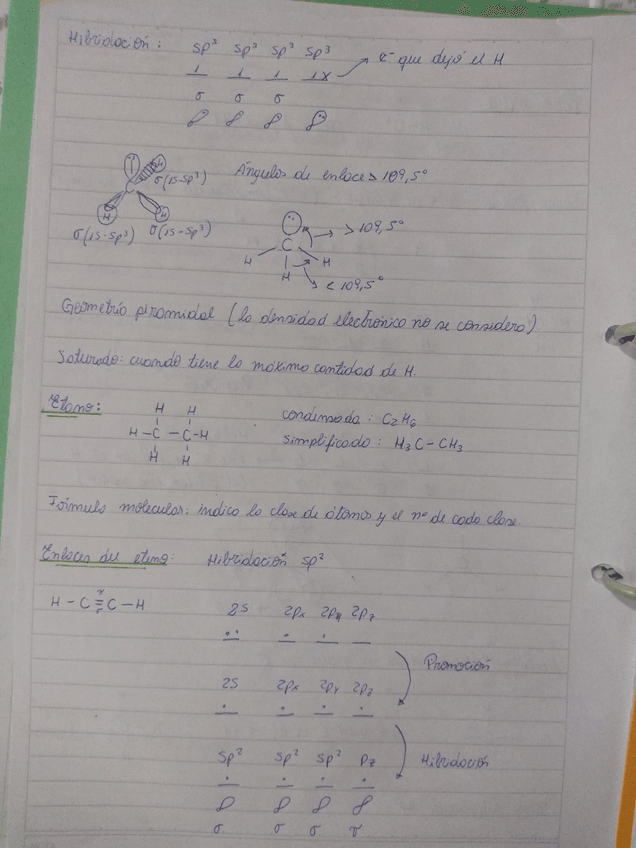 Hibridación: sp³ sp³ sp³ sp³
1 1 1 1x → e⁻ que dejó el H
σ σ σ
C H H H
σ(1s-sp³) Ángulos de enlace > 109,5°
σ(1s-sp³) σ(1s-sp³)
C → > 109,5°
H H H → < 109,5°
Geometría piramidal (la densidad electrónica no se considera)
Saturado: cuando tiene la máxima cantidad de H.
Etano: H H
H-C-C-H
H H
condensada: C₂H₆
simplificada: H₃C-CH₃
Fórmula molecular: indica la clase de átomos y el nº de cada clase.
Enlaces del eteno: Hibridación sp²
H-C≡C-H
2s 2px 2py 2pz
Promoción
2s 2px 2py 2pz
sp² sp² sp² pz Hibridación
σ σ σ π